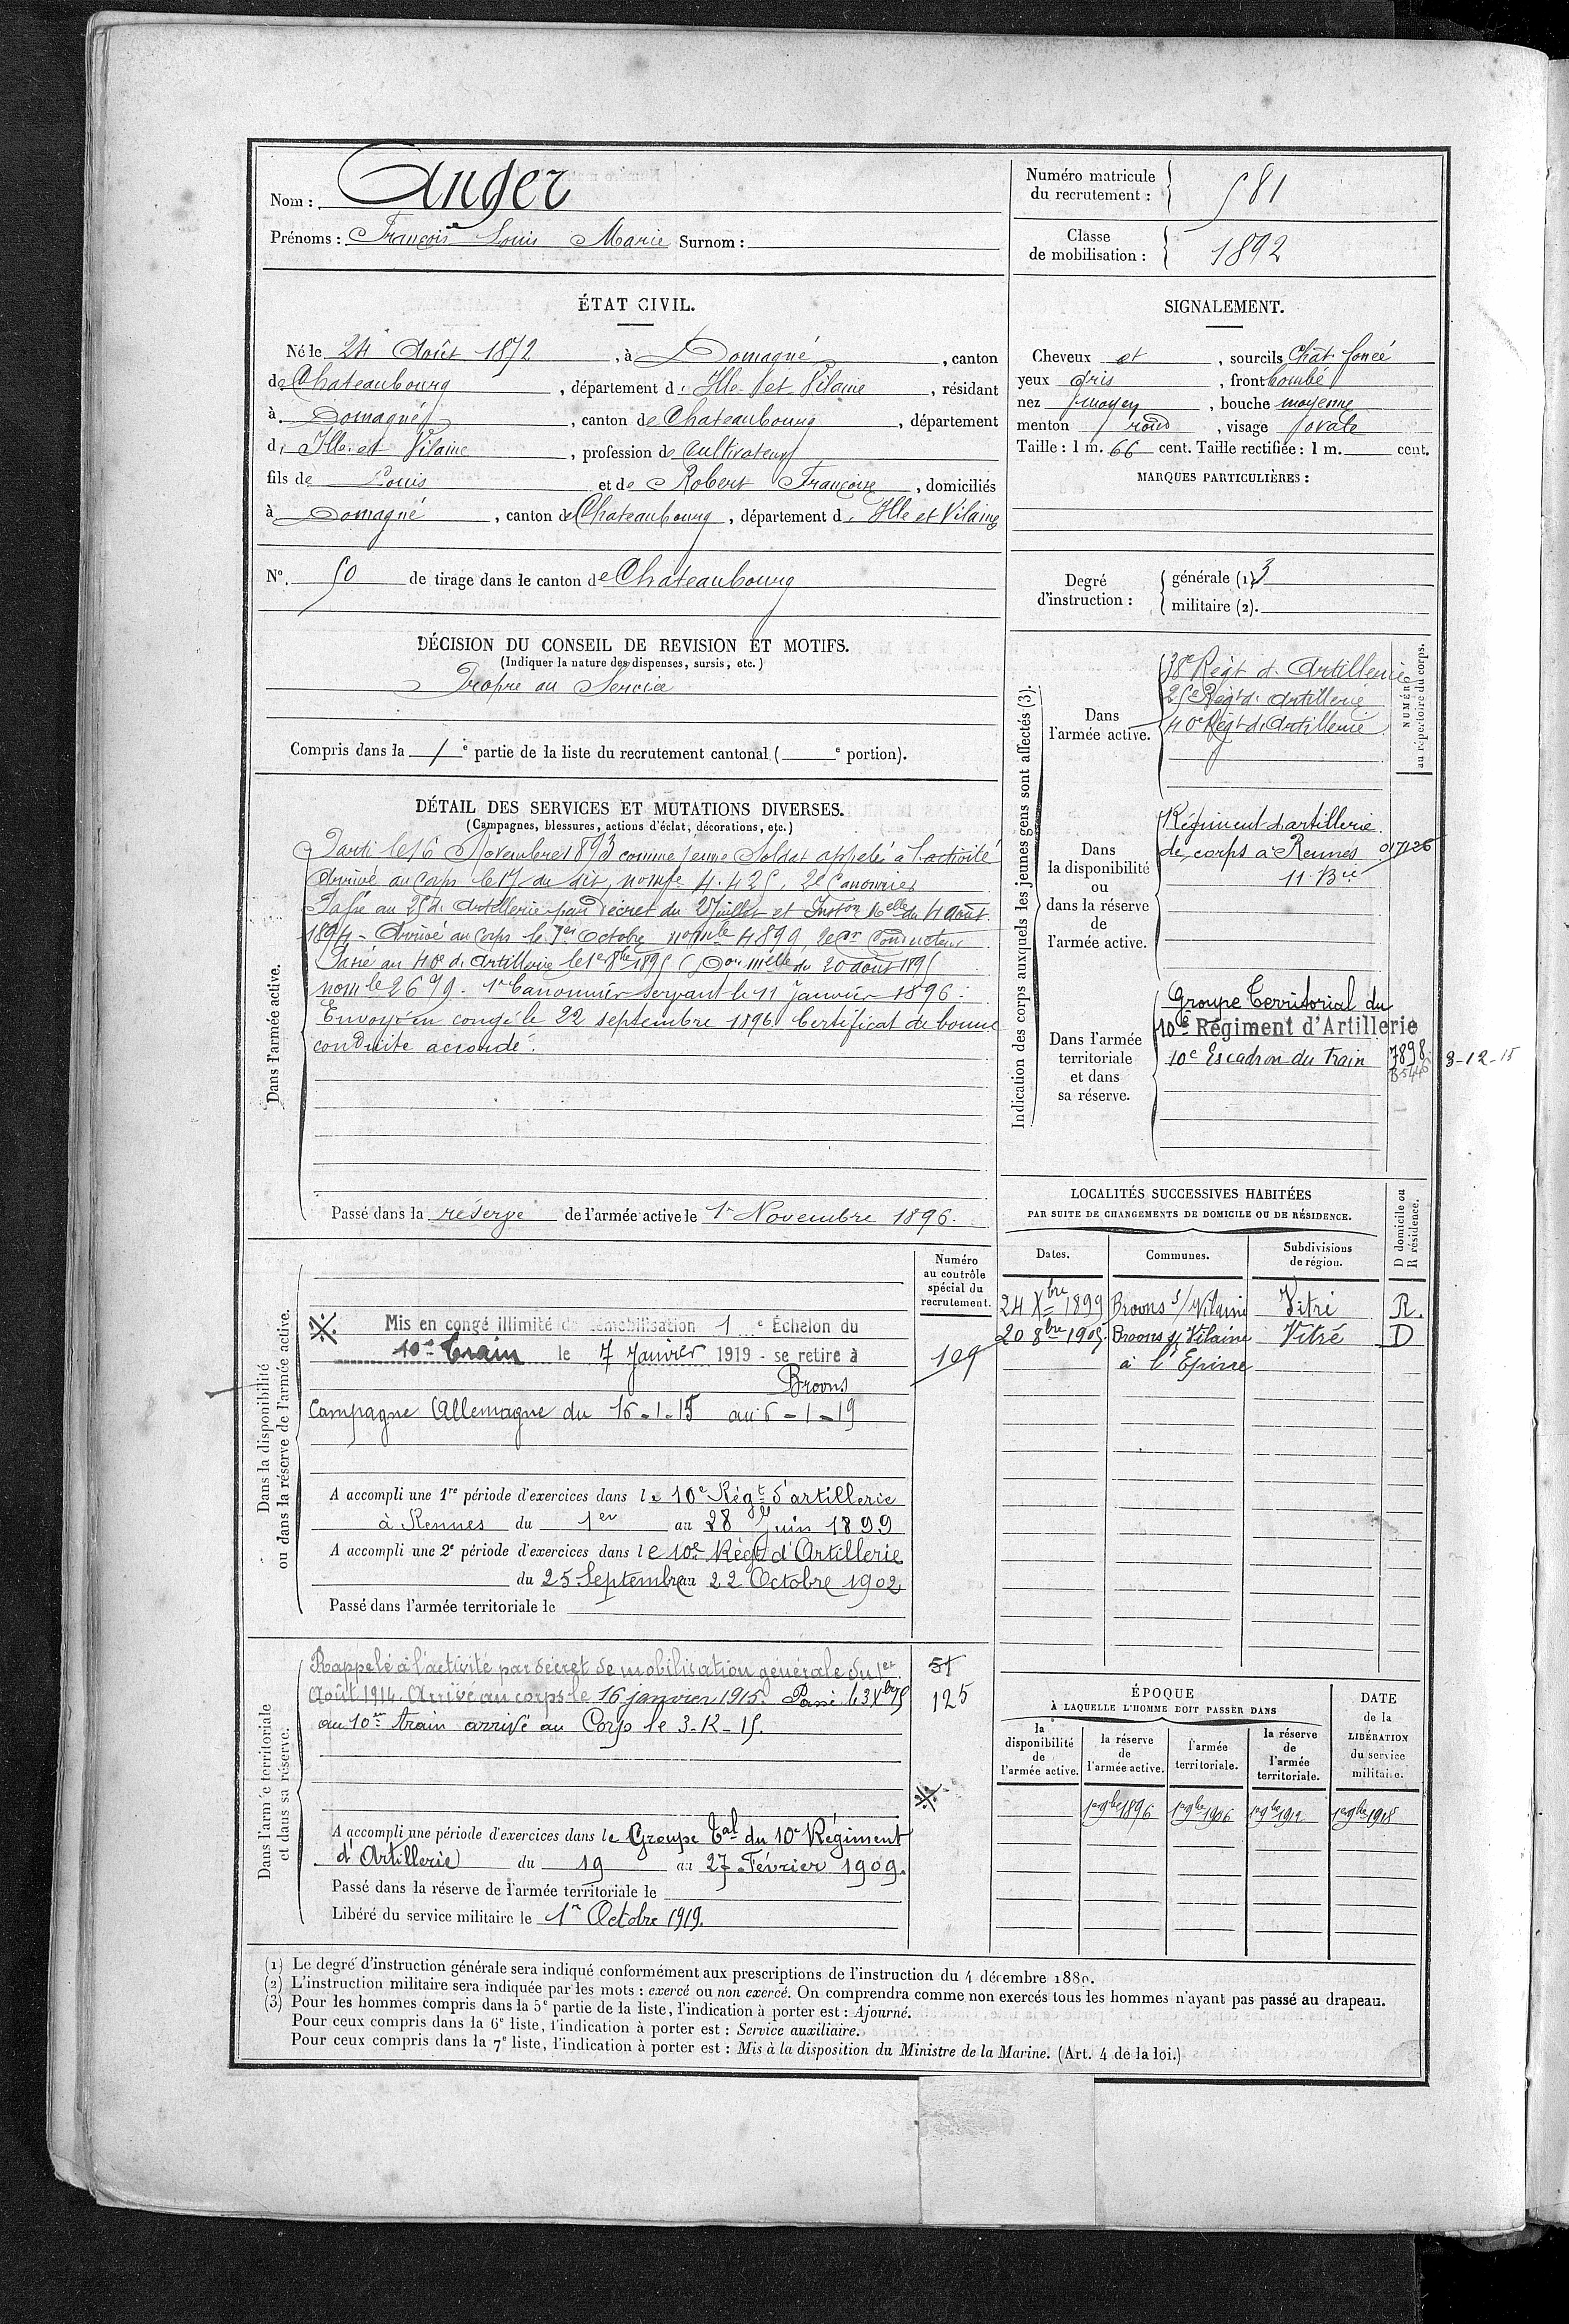 Nom : Anger
Prénoms : François Louis Marie Surnom :
Numéro matricule du recrutement : 581
Classe de mobilisation : 1892
ÉTAT CIVIL.
Né le 24 Août 1872, à Domagné, canton
de Chateaubourg, département d. Ille et Vilaine, résidant
à Domagné, canton de Chateaubourg, département
d. Ille et Vilaine, profession de Cultivateur
fils de Louis et de Robert Françoise, domiciliés
à Domagné, canton de Chateaubourg, département d. Ille et Vilaine
N°. 50 de tirage dans le canton de Chateaubourg
SIGNALEMENT.
Cheveux et, sourcils Chât foncé
yeux gris, front bombé
nez moyen, bouche moyenne
menton rond, visage ovale
Taille : 1 m. 66 cent. Taille rectifiée : 1 m. cent.
MARQUES PARTICULIÈRES :
Degré d'instruction :
générale (1) 3
militaire (2).
DÉCISION DU CONSEIL DE REVISION ET MOTIFS.
(Indiquer la nature des dispenses, sursis, etc.)
Propre au Service
Compris dans la 1e partie de la liste du recrutement cantonal ( e portion).
DÉTAIL DES SERVICES ET MUTATIONS DIVERSES.
(Campagnes, blessures, actions d'éclat, décorations, etc.)
Dans l'armée active.
Parti le 16 Novembre 1893 comme jeune Soldat appelé à l'activité
Arrivé au Corps le 17 du dit, 4.425, 2e Canonnier
Passé au 25e d. Artillerie par décret du 2 Juillet et du 4 août
1894 - Arrivé au Corps le 1er Octobre 4899, Conducteur
Passé au 40e d. Artillerie le 1er 8bre 1895 ( du 20 août 1895
nom le 2679. 1er Canonnier servant le 11 Janvier 1896.
Envoyé en congé le 22 septembre 1896 Certificat de bonne
conduite accordé.
Passé dans la réserve de l'armée active le 1er Novembre 1896.
Indication des corps auxquels les jeunes gens sont affectés (3).
NUMÉRO au répertoire du corps.
Dans l'armée active.
38e Régt d. Artillerie
25e Régt d. Artillerie
40e Régt d. Artillerie
Dans la disponibilité ou dans la réserve de l'armée active.
Régiment d'artillerie
de corps à Rennes
11 Bie
Dans l'armée territoriale et dans sa réserve.
Groupe Territorial du
10e Régiment d'Artillerie
10e Escadron du Train 7898 3-12-15
LOCALITÉS SUCCESSIVES HABITÉES
PAR SUITE DE CHANGEMENTS DE DOMICILE OU DE RÉSIDENCE.
Dates. Communes. Subdivisions de région. D domicile ou R résidence.
24 Xbre 1899 Broons s/ Vilaine Vitré R.
20 8bre 1905 Broons s/ Vilaine Vitré D
à l'Epine
Dans la disponibilité ou dans la réserve de l'armée active.
Numéro au contrôle spécial du recrutement.
Mis en congé illimité de démobilisation 1e Échelon du
10e Train le 7 Janvier 1919 - se retire à
Broons
109
Campagne Allemagne du 16-1-15 au 6-1-19
A accompli une 1re période d'exercices dans le 10e Régt d'artillerie
à Rennes du 1er au 28 Juin 1899
A accompli une 2e période d'exercices dans le 10e Régt d'Artillerie
du 25 Septembre au 22 Octobre 1902
Passé dans l'armée territoriale le
Dans l'armée territoriale et dans sa réserve.
Rappelé à l'activité par décret de mobilisation générale du 1er
Août 1914. Arrivé au corps le 16 janvier 1915. Passé le 3 Xbre 15
au 10e train arrivé au Corps le 3-12-15.
51
125
A accompli une période d'exercices dans le Groupe Tal du 10e Régiment
d'Artillerie du 19 au 27 Février 1909.
Passé dans la réserve de l'armée territoriale le
Libéré du service militaire le 1er Octobre 1919.
ÉPOQUE
À LAQUELLE L'HOMME DOIT PASSER DANS
la disponibilité de l'armée active.
la réserve de l'armée active.
l'armée territoriale.
la réserve de l'armée territoriale.
DATE de la LIBÉRATION du service militaire.
1er 9bre 1896 1er 9bre 1906 1er 9bre 1912 1er 9bre 1918
(1) Le degré d'instruction générale sera indiqué conformément aux prescriptions de l'instruction du 4 décembre 1889.
(2) L'instruction militaire sera indiquée par les mots : exercé ou non exercé. On comprendra comme non exercés tous les hommes n'ayant pas passé au drapeau.
(3) Pour les hommes compris dans la 5e partie de la liste, l'indication à porter est : Ajourné.
Pour ceux compris dans la 6e liste, l'indication à porter est : Service auxiliaire.
Pour ceux compris dans la 7e liste, l'indication à porter est : Mis à la disposition du Ministre de la Marine. (Art. 4 de la loi.)